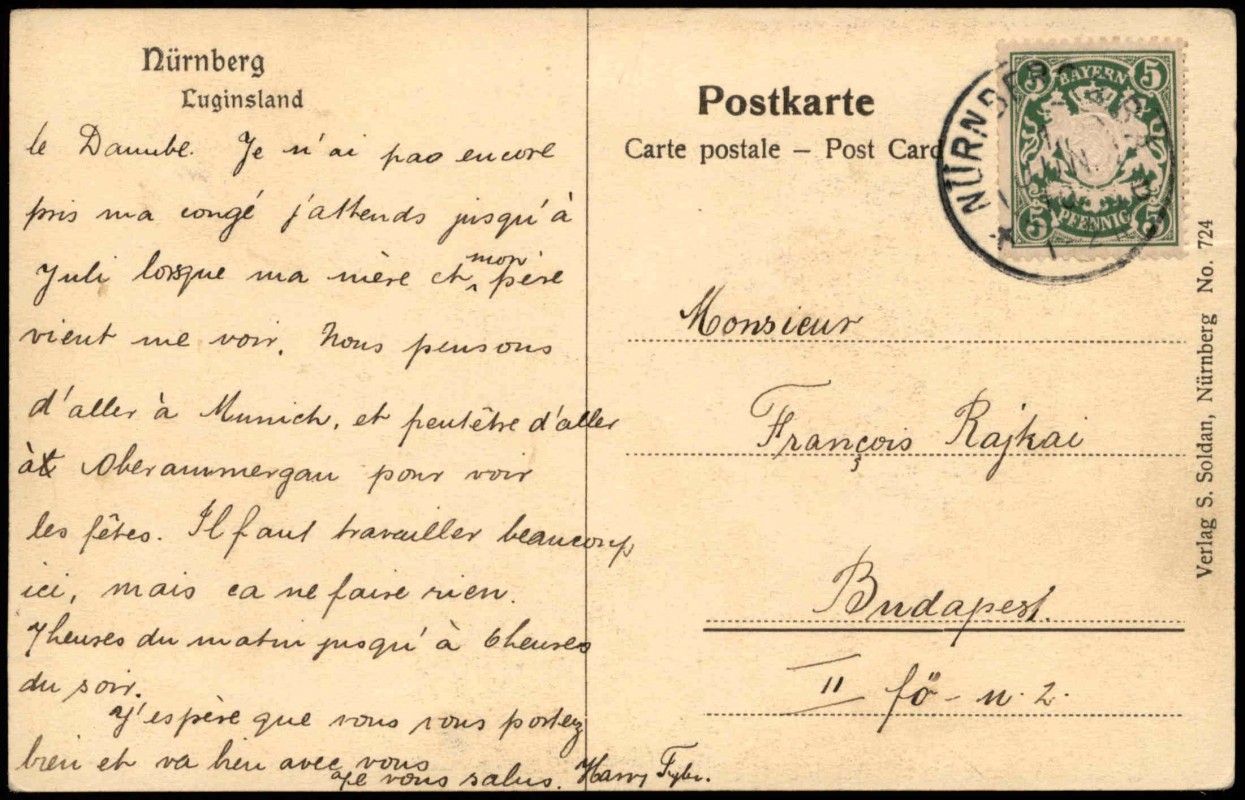 Nürnberg
Luginsland
le Danube. Je n'ai pas encore
pris ma congé j'attends jusqu'à
Juli lorsque ma mère et mon père
vient me voir. Nous pensons
d'aller à Munich, et peutêtre d'aller
à Oberammergau pour voir
les fêtes. Il faut travailler beaucoup
ici, mais ca ne faire rien.
7 heures du matin jusqu'à 6 heures
du soir.
J'espère que vous vous portez
bien et va bien avec vous
Je vous salus. Harry
Postkarte
Carte postale – Post Card
BAYERN
5 5
5 PFENNIG 5
NÜRNBERG
Monsieur
François Rajkai
Budapest.
II fő - u. 2.
Verlag S. Soldan, Nürnberg No. 724